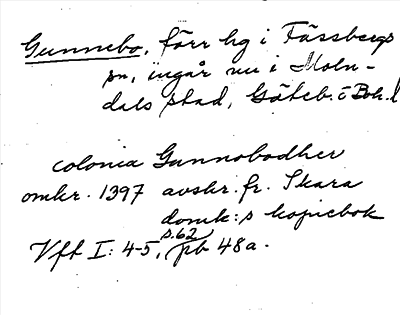 Gunnebo, förr hg i Fässbergs
sn, ingår nu i Möln-
dals stad, Göteb. o Boh. l
colonia Gunnobodher
omkr. 1397 avskr. fr. Skara
domk:s kopiebok
s. 62
Vft I: 4-5, pb 48a.